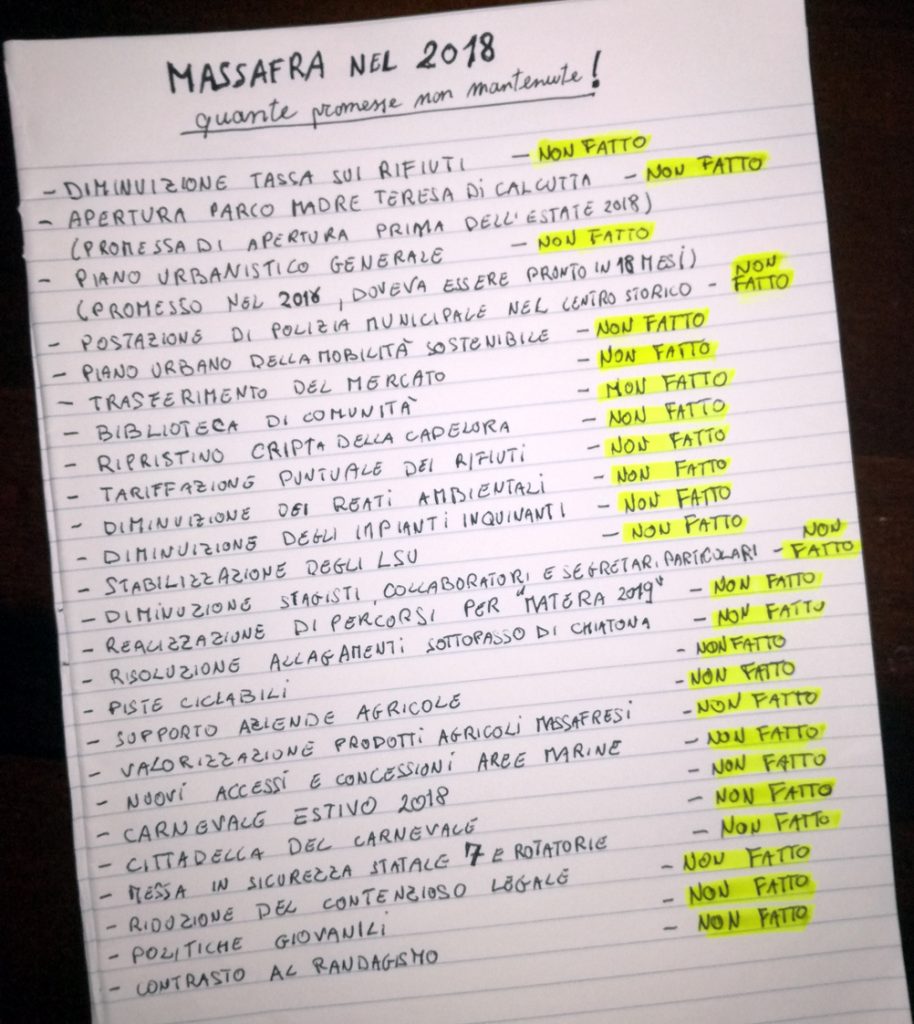 MASSAFRA NEL 2018
quante promesse non mantenute!
- DIMINUIZIONE TASSA SUI RIFIUTI - NON FATTO
- APERTURA PARCO MADRE TERESA DI CALCUTTA - NON FATTO
(PROMESSA DI APERTURA PRIMA DELL'ESTATE 2018)
- PIANO URBANISTICO GENERALE - NON FATTO
(PROMESSO NEL 2016, DOVEVA ESSERE PRONTO IN 18 MESI)
- POSTAZIONE DI POLIZIA MUNICIPALE NEL CENTRO STORICO - NON FATTO
- PIANO URBANO DELLA MOBILITÀ SOSTENIBILE - NON FATTO
- TRASFERIMENTO DEL MERCATO - NON FATTO
- BIBLIOTECA DI COMUNITÀ - NON FATTO
- RIPRISTINO CRIPTA DELLA CADELORA - NON FATTO
- TARIFFAZIONE PUNTUALE DEI RIFIUTI - NON FATTO
- DIMINUIZIONE DEI REATI AMBIENTALI - NON FATTO
- DIMINUIZIONE DEGLI IMPIANTI INQUINANTI - NON FATTO
- STABILIZZAZIONE DEGLI LSU - NON FATTO
- DIMINUZIONE STAGISTI, COLLABORATORI E SEGRETARI PARTICOLARI - NON FATTO
- REALIZZAZIONE DI PERCORSI PER "MATERA 2019" - NON FATTO
- RISOLUZIONE ALLAGAMENTI SOTTOPASSO DI CHIATONA - NON FATTO
- PISTE CICLABILI - NON FATTO
- SUPPORTO AZIENDE AGRICOLE - NON FATTO
- VALORIZZAZIONE PRODOTTI AGRICOLI MASSAFRESI - NON FATTO
- NUOVI ACCESSI E CONCESSIONI AREE MARINE - NON FATTO
- CARNEVALE ESTIVO 2018 - NON FATTO
- CITTADELLA DEL CARNEVALE - NON FATTO
- MESSA IN SICUREZZA STATALE 7 E ROTATORIE - NON FATTO
- RIDUZIONE DEL CONTENZIOSO LEGALE - NON FATTO
- POLITICHE GIOVANILI - NON FATTO
- CONTRASTO AL RANDAGISMO - NON FATTO